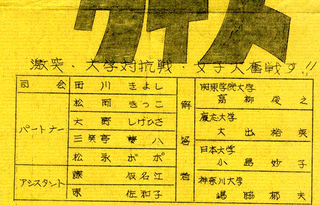 クイズ
激突、大学対抗戦・女子大奮戦す!!
司会 田川きよし
パートナー
松岡きっこ
大野しげひさ
三笑亭夢八
松永ポポ
アシスタント
佐和子
解答者
関東学院大学
慶応大学
大出
日本大学
小島妙子
神奈川大学